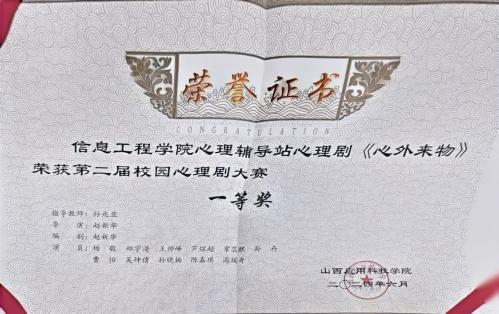 荣誉证书
CONGRATULATION
信息工程学院心理辅导站心理剧《心外来物》
荣获第二届校园心理剧大赛
一等奖
指导教师：孙兆亚
导 演：赵新华
编 剧：赵新华
演 员：杨 毅 郑宇浩 王帅峰 芦煜超 常芸麒 孙 丹
曹 怡 吴坤倩 孙晓楠 陈嘉琪 高瑞奇
山西应用科技学院
二〇二四年六月